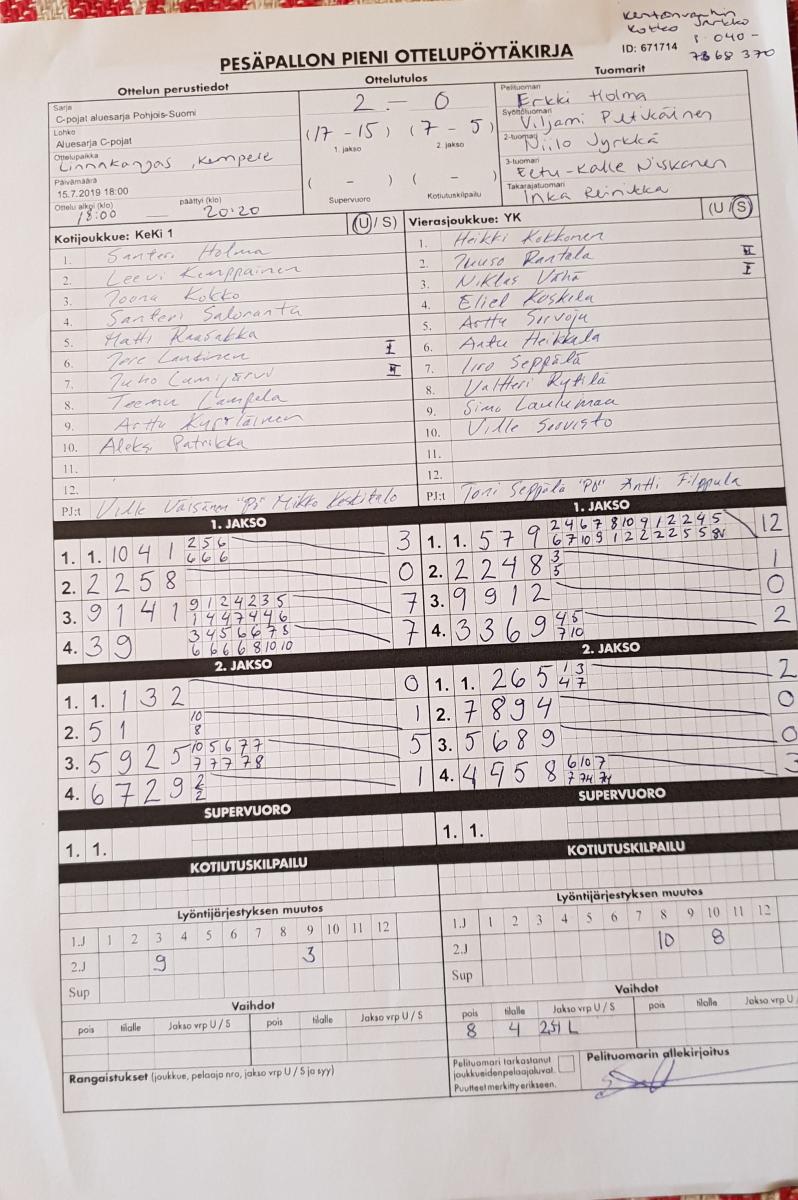 Kotko Jarkko
040-
7368 370
PESÄPALLON PIENI OTTELUPÖYTÄKIRJA
ID: 671714
Ottelun perustiedot
Ottelutulos
Tuomarit
Sarja
C-pojat aluesarja Pohjois-Suomi
Lohko
Aluesarja C-pojat
Ottelupaikka
Linnakangas, Kempele
Päivämäärä
15.7.2019 18:00
Ottelu alkoi (klo) päättyi (klo)
18:00 20:20
2 - 0
(17 - 15) (7 - 5)
1. jakso 2. jakso
( - ) ( - )
Supervuoro Kotiutuskilpailu
Pelituomari
Erkki Holma
Syöttötuomari
Viljami Pitkäinen
2-tuomari
Niilo Jyrkkä
3-tuomari
Eetu-Kalle Niskanen
Takarajatuomari
Inka Reinikka
Kotijoukkue: KeKi 1 (U / S)
1. Santeri Holma
2. Leevi Kemppainen
3. Joona Kokko
4. Santeri Saloranta
5. Matti Raasakka
6. Tore Lantinen I
7. Juho Lumijärvi II
8. Teemu Lampela
9. Arttu Kyröläinen
10. Aleksi Patrikka
11.
12.
PJ:t Ville Väisänen "PÖ" Mikko Keskitalo
Vierasjoukkue: YK (U / S)
1. Heikki Kokkonen
2. Juuso Rantala II
3. Niklas Vähä I
4. Eliel Koskela
5. Arttu Sorvoja
6. Aatu Heikkala
7. Iiro Seppälä
8. Valtteri Rytilä
9. Simo Laulumaa
10. Ville Soovisto
11.
12.
PJ:t Toni Seppälä "PÖ" Antti Filppula
1. JAKSO
1. 1. 10 4 1 2 5 6 3
6 6 6
2. 2 2 5 8 0
3. 9 1 4 1 9 1 2 4 2 3 5 7
1 4 4 7 4 4 6
4. 3 9 3 4 5 6 6 7 8 7
6 6 6 6 8 10 10
1. JAKSO
1. 1. 5 7 9 2 4 6 7 8 10 9 1 2 2 4 5 12
6 7 10 9 1 2 2 2 2 5 5 8V
2. 2 2 4 8 3 1
5
3. 9 9 1 2 0
4. 3 3 6 9 4 5 2
7 10
2. JAKSO
1. 1. 1 3 2 0
2. 5 1 10 1
8
3. 5 9 2 5 10 5 6 7 7 5
7 7 7 7 8
4. 6 7 2 9 2 1
2
2. JAKSO
1. 1. 2 6 5 1 3 2
4 7
2. 7 8 9 4 0
3. 5 6 8 9 0
4. 4 9 5 8 6 10 7 3
SUPERVUORO
1. 1.
SUPERVUORO
1. 1.
KOTIUTUSKILPAILU
KOTIUTUSKILPAILU
Lyöntijärjestyksen muutos
1.J 1 2 3 4 5 6 7 8 9 10 11 12
2.J 9 3
Sup
Lyöntijärjestyksen muutos
1.J 1 2 3 4 5 6 7 8 9 10 11 12
2.J 10 8
Sup
Vaihdot
pois tilalle Jakso vrp U / S pois tilalle Jakso vrp U / S
Vaihdot
pois tilalle Jakso vrp U / S pois tilalle Jakso vrp U / S
8 4
Rangaistukset (joukkue, pelaaja nro, jakso vrp U / S ja syy)
Pelituomari tarkastanut
joukkueidenpelaajaluvat.
Puutteet merkitty erikseen.
Pelituomarin allekirjoitus